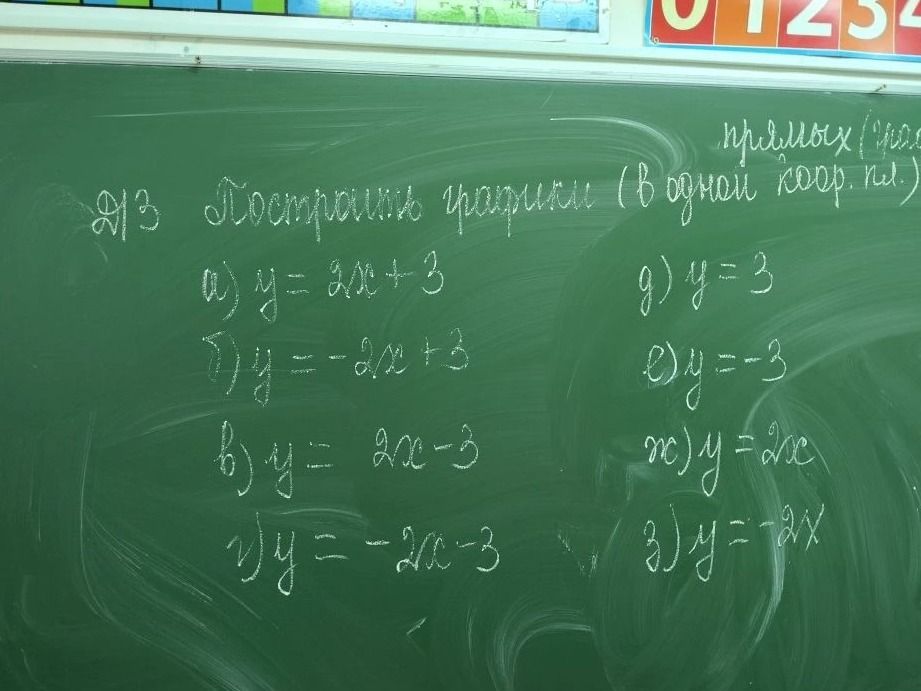 0 1 2 3 4
прямых (
Д/З Построить графики (в одной коор. пл.)
а) y = 2x + 3
б) y = -2x + 3
в) y = 2x - 3
г) y = -2x - 3
д) y = 3
е) y = -3
ж) y = 2x
з) y = -2x